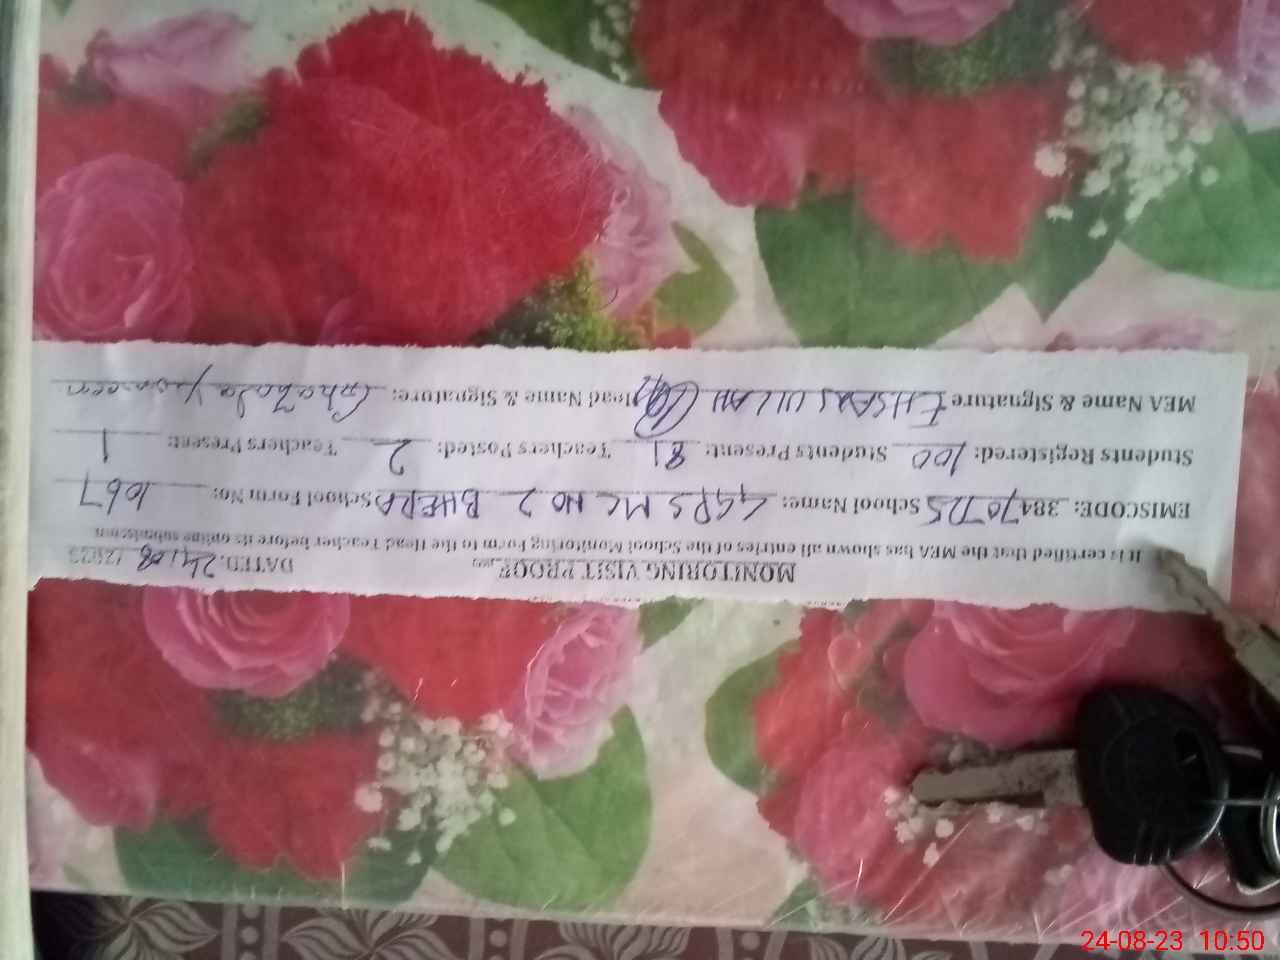 MONITORING VISIT PROOF DATED: 24/08 /2023
It is certified that the MEA has shown all entries of the School Monitoring Form to the Head Teacher before its online submission
EMISCODE: 38470725 School Name: GGPS MC NO 2 BHERA School Form No: 1067
Students Registered: 100 Students Present: 81 Teachers Posted: 2 Teachers Present: 1
MEA Name & Signature EHSAN ULLAH Head Name & Signature: Ghazala Yasmeen
24-08-23 10:50